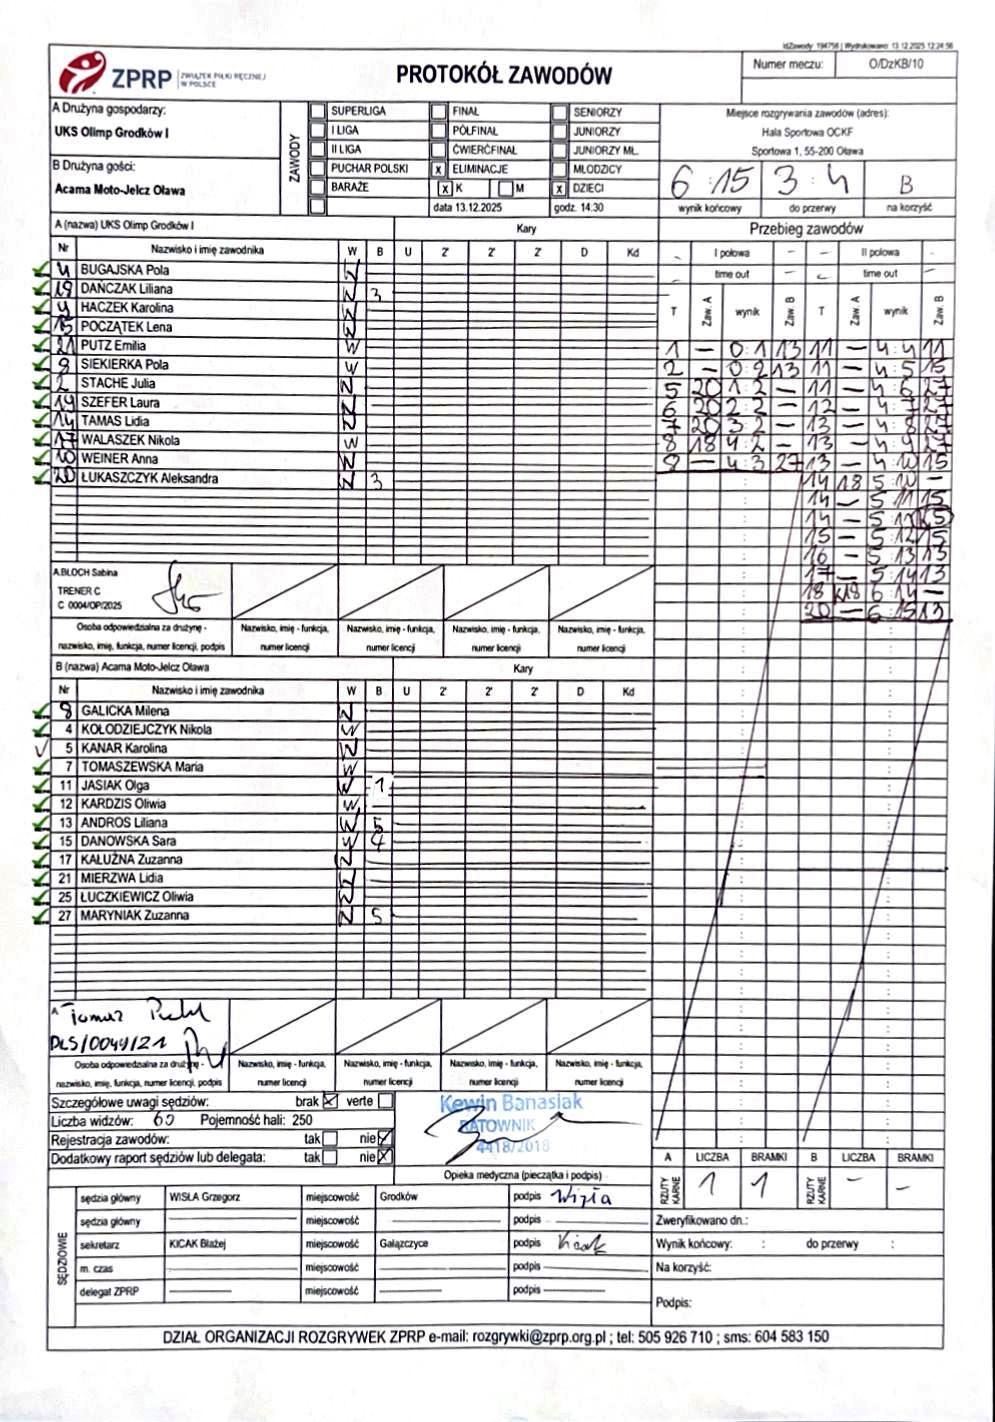 idZawody: 194756 | Wydrukowano: 13.12.2025 12:24:56
ZPRP ZWIĄZEK PIŁKI RĘCZNEJ W POLSCE
PROTOKÓŁ ZAWODÓW
Numer meczu: O/DzKB/10
A Drużyna gospodarzy:
UKS Olimp Grodków I
B Drużyna gości:
Acama Moto-Jelcz Oława
ZAWODY
SUPERLIGA FINAŁ SENIORZY
I LIGA PÓŁFINAŁ JUNIORZY
II LIGA ĆWIERĆFINAŁ JUNIORZY MŁ.
PUCHAR POLSKI x ELIMINACJE MŁODZICY
BARAŻE x K M x DZIECI
data 13.12.2025 godz. 14.30
Miejsce rozgrywania zawodów (adres):
Hala Sportowa OCKF
Sportowa 1, 55-200 Oława
6 : 15 3 : 4 B
wynik końcowy do przerwy na korzyść
A (nazwa) UKS Olimp Grodków I Kary
Nr Nazwisko i imię zawodnika W B U 2' 2' 2' D Kd
4 BUGAJSKA Pola
19 DAŃCZAK Liliana 3
HACZEK Karolina
15 POCZĄTEK Lena
21 PUTZ Emilia W
8 SIEKIERKA Pola W
2 STACHE Julia
SZEFER Laura
14 TAMAS Lidia
17 WALASZEK Nikola W
10 WEINER Anna
20 ŁUKASZCZYK Aleksandra 3
A.BLOCH Sabina
TRENER C
C 0004/OP/2025
Osoba odpowiedzialna za drużynę - nazwisko, imię, funkcja, numer licencji, podpis
Nazwisko, imię - funkcja, numer licencji
Nazwisko, imię - funkcja, numer licencji
Nazwisko, imię - funkcja, numer licencji
Nazwisko, imię - funkcja, numer licencji
B (nazwa) Acama Moto-Jelcz Oława Kary
Nr Nazwisko i imię zawodnika W B U 2' 2' 2' D Kd
8 GALICKA Milena
4 KOŁODZIEJCZYK Nikola W
5 KANAR Karolina
7 TOMASZEWSKA Maria W
11 JASIAK Olga W 1
12 KARDZIS Oliwia W
13 ANDROS Liliana W 5
15 DANOWSKA Sara W 4
17 KAŁUŻNA Zuzanna
21 MIERZWA Lidia
25 ŁUCZKIEWICZ Oliwia
27 MARYNIAK Zuzanna 5
A Tomasz
DLS/0049/21
Osoba odpowiedzialna za drużynę - nazwisko, imię, funkcja, numer licencji, podpis
Nazwisko, imię - funkcja, numer licencji
Nazwisko, imię - funkcja, numer licencji
Nazwisko, imię - funkcja, numer licencji
Nazwisko, imię - funkcja, numer licencji
Przebieg zawodów
I połowa - II połowa -
time out - time out -
T Zaw. A wynik Zaw. B T Zaw. A wynik Zaw. B
1 - 0:1 13 11 - 4:4 11
2 - 0:2 13 11 - 4:5 15
5 20 1:2 - 11 - 4:6 27
6 20 2:2 - 12 - 4:7 27
7 20 3:2 - 13 - 4:8 27
8 18 4:2 - 13 - 4:9 27
8 - 4:3 27 13 - 4:10 15
14 18 5:10 -
14 - 5:11 15
14 - 5
15 - 5:12 15
16 - 5:13 13
17 - 5:14 13
18 k18 6:14 -
20 - 6:15 13
Szczegółowe uwagi sędziów: brak x verte
Liczba widzów: 60 Pojemność hali: 250
Rejestracja zawodów: tak nie x
Dodatkowy raport sędziów lub delegata: tak nie x
Kewin Banasiak
RATOWNIK
4418/2018
Opieka medyczna (pieczątka i podpis)
A LICZBA BRAMKI B LICZBA BRAMKI
RZUTY KARNE 1 1 RZUTY KARNE - -
SĘDZIOWIE
sędzia główny WISŁA Grzegorz miejscowość Grodków podpis Wisła
sędzia główny miejscowość podpis
sekretarz KICAK Błażej miejscowość Gałązczyce podpis Kicak
m. czas miejscowość podpis
delegat ZPRP miejscowość podpis
Zweryfikowano dn.:
Wynik końcowy: : do przerwy :
Na korzyść:
Podpis:
DZIAŁ ORGANIZACJI ROZGRYWEK ZPRP e-mail: rozgrywki@zprp.org.pl ; tel: 505 926 710 ; sms: 604 583 150